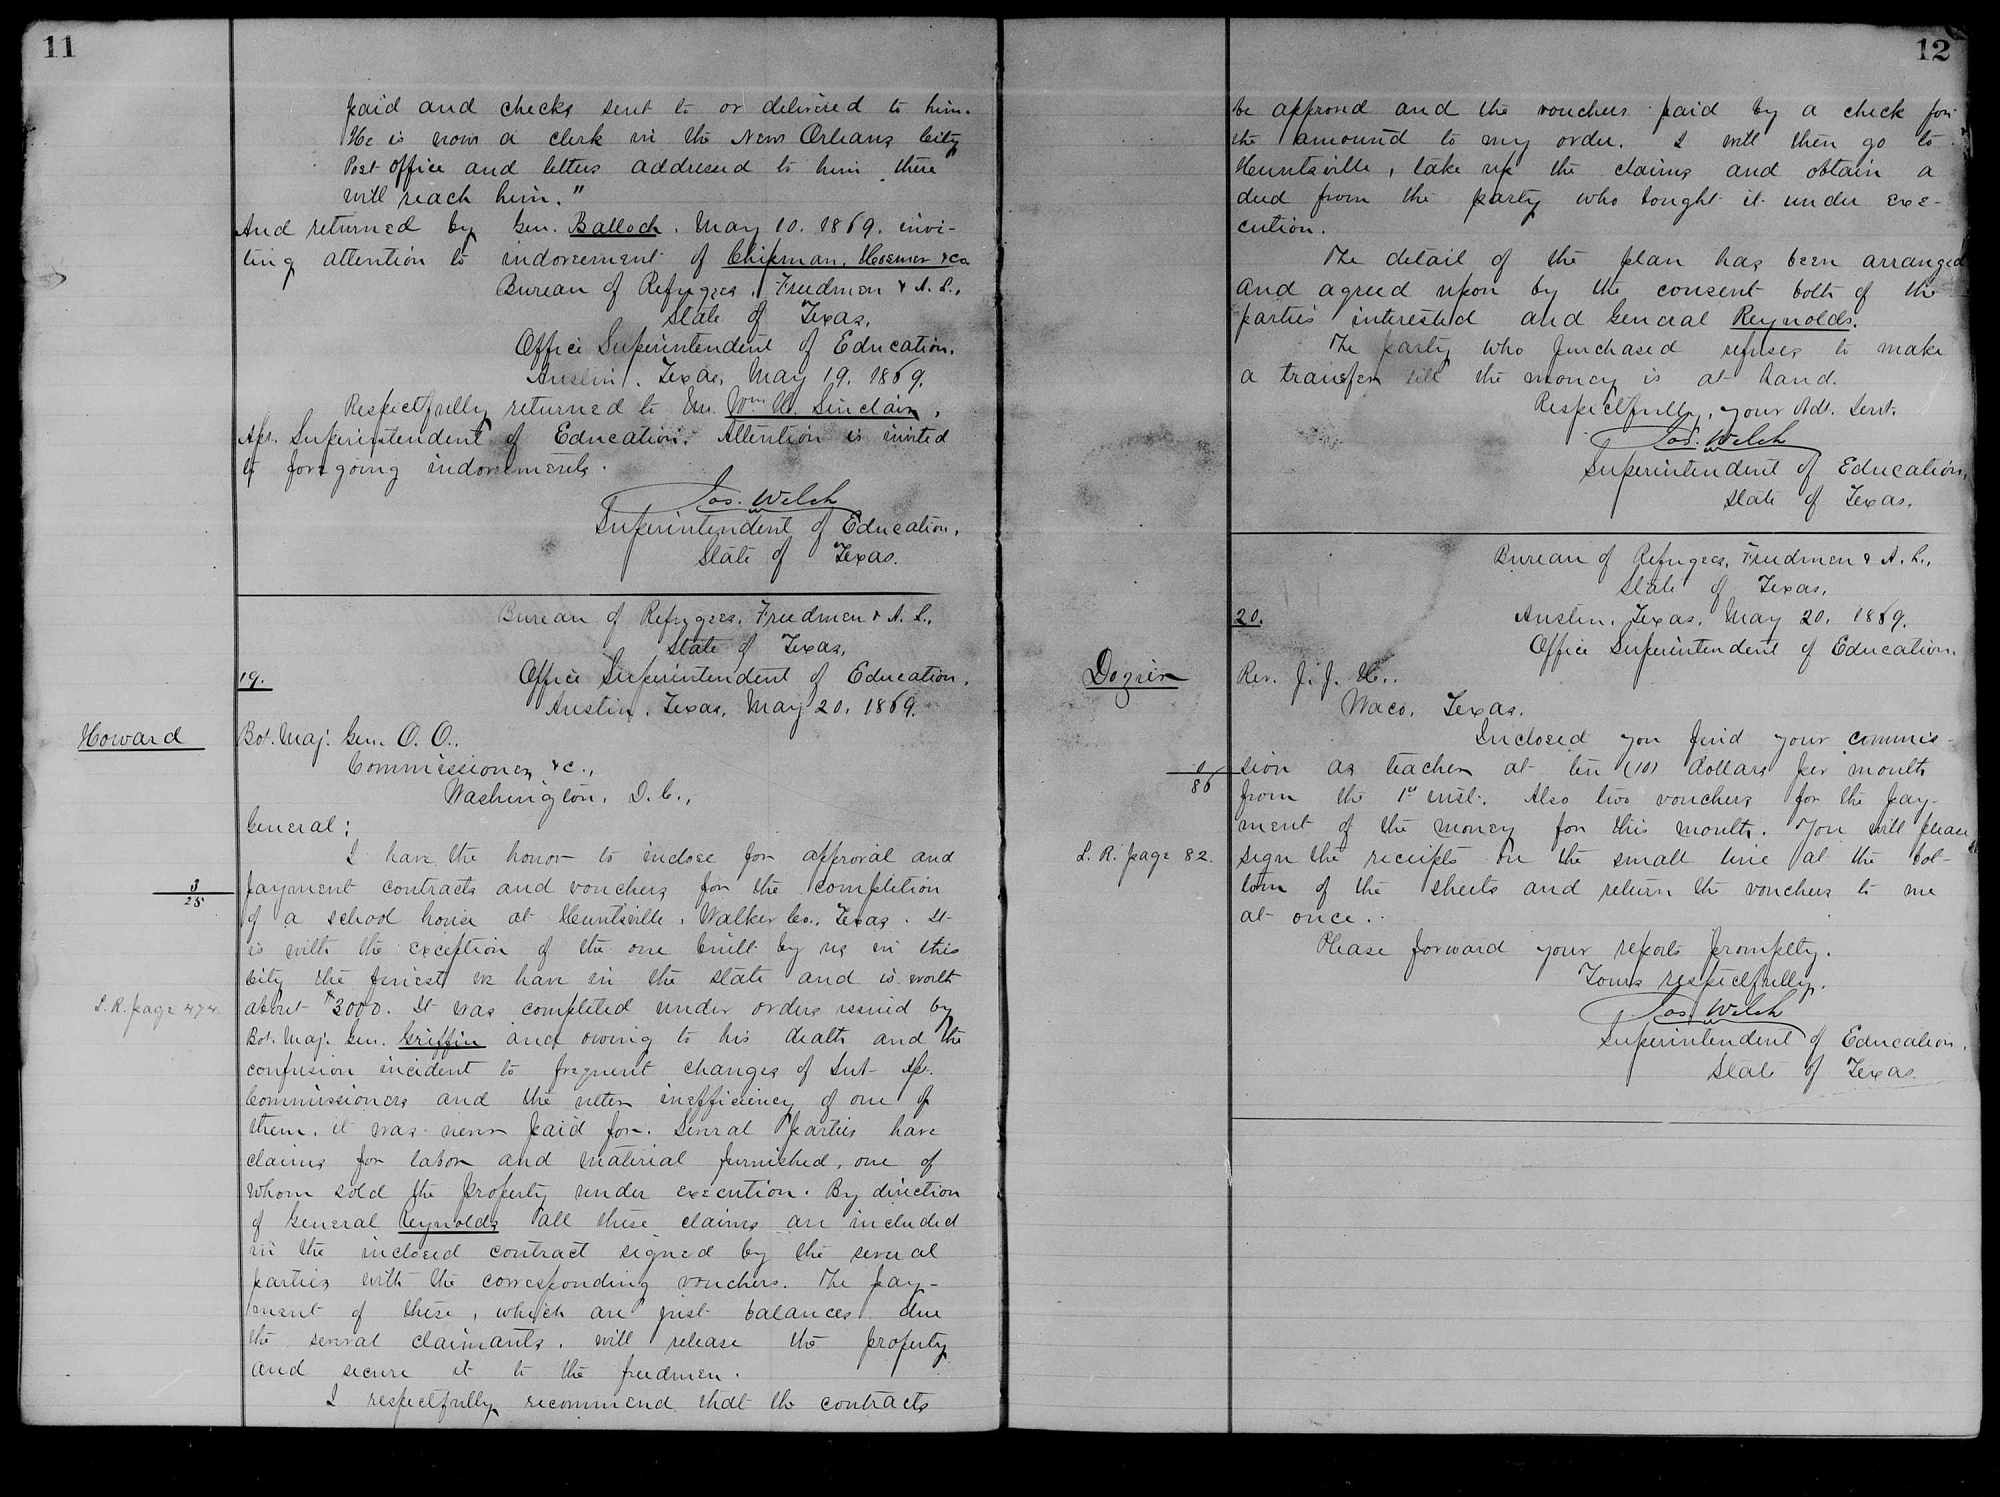 11
paid and checks sent to or delivered to him.
He is now a clerk in the New Orleans City
Post Office and letters addressed to him there
will reach him."
And returned by Gen. Balloch, May 10. 1869. invi-
ting attention to indorsement of Chipman, Hosmer & Co.
Bureau of Refugees, Freedmen & A. L.,
State of Texas,
Office Superintendent of Education.
Austin, Texas, May 19. 1869.
Respectfully returned to Mr. Wm H. Sinclair,
Ast. Superintendent of Education. Attention is invited
to foregoing indorsements.
Jos. Welch
Superintendent of Education,
State of Texas.
Bureau of Refugees, Freedmen & A. L.,
State of Texas,
19.
Office Superintendent of Education,
Austin, Texas, May 20, 1869.
Howard
Bvt. Maj. Gen. O. O.,
Commissioner, &c.,
Washington, D. C.,
General:
I have the honor to inclose for approval and
3/25
payment contracts and vouchers for the completion
of a school house at Huntsville, Walker Co., Texas. It
is with the exception of the one built by us in this
City the finest we have in the State and is worth
L. R. page 474.
about $3000. It was completed under orders issued by
Bvt. Maj. Gen. Griffin and owing to his death and the
confusion incident to frequent changes of Sub- Ast.
Commissioners and the utter inefficiency of one of
them, it was never paid for. Several parties have
claims for labor and material furnished, one of
whom sold the property under execution. By direction
of General Reynolds all these claims are included
in the inclosed contract signed by the several
parties with the corresponding vouchers. The pay-
ment of these, which are just balances due
the several claimants, will release the property
and secure it to the freedmen.
I respectfully recommend that the contracts
12
be approved and the vouchers paid by a check for
the amount to my order. I will then go to
Huntsville, take up the claims and obtain a
deed from the party who bought it under exe-
cution.
The detail of the plan has been arranged
and agreed upon by the consent both of the
parties interested and General Reynolds.
The party who purchased refuses to make
a transfer till the money is at hand.
Respectfully, your Obt. Servt.
Jos. Welch
Superintendent of Education,
State of Texas.
Bureau of Refugees, Freedmen & A. L.,
State of Texas,
20.
Austin, Texas, May 20, 1869.
Office Superintendent of Education.
Dozier
Rev. J. J. H.,
Waco, Texas.
Inclosed you find your commis-
sion as teacher at ten (10) dollars per month
86
from the 1st inst. Also two vouchers for the pay-
ment of the money for this month. You will please
L. R. page 82.
sign the receipts on the small line at the bot-
tom of the sheets and return the vouchers to me
at once.
Please forward your reports promptly.
Yours respectfully,
Jos. Welch
Superintendent of Education,
State of Texas.